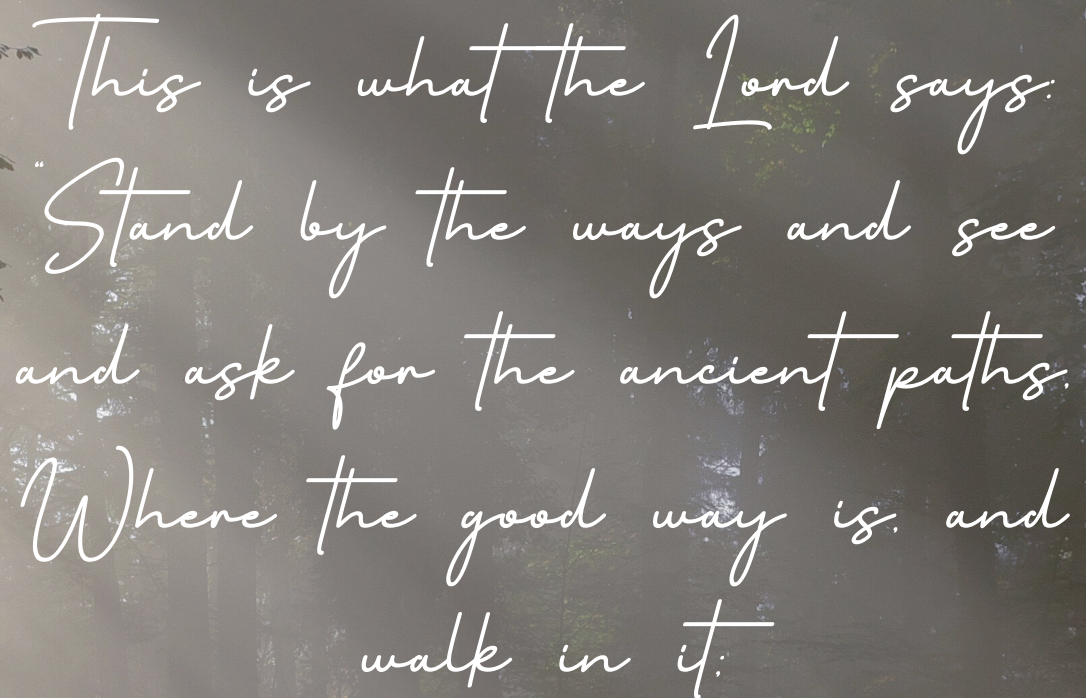 This is what the Lord says:
“Stand by the ways and see
and ask for the ancient paths,
Where the good way is, and
walk in it;